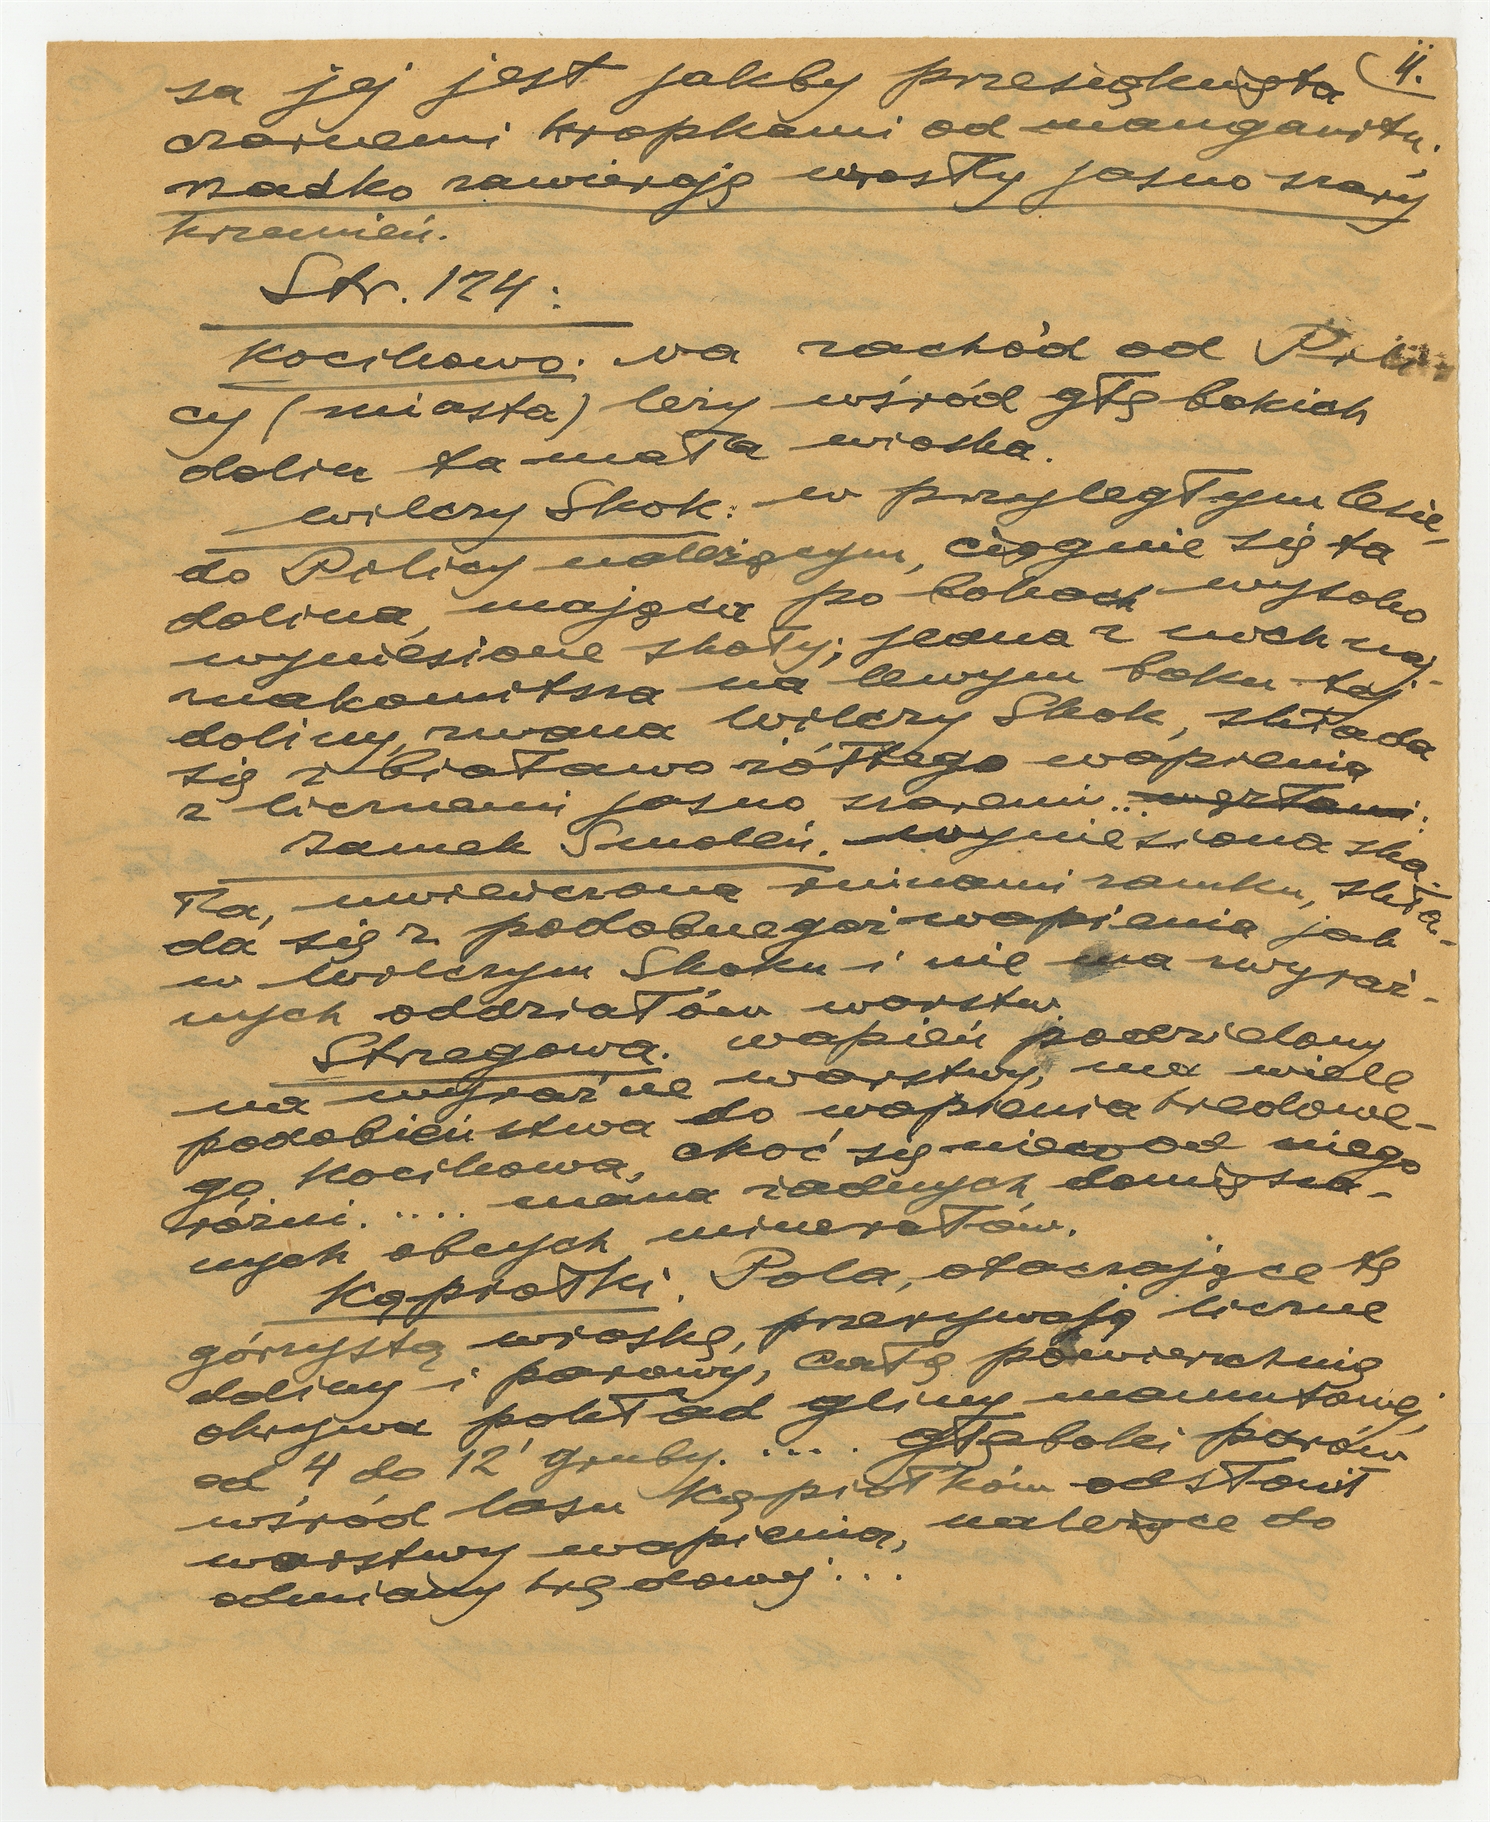 4.
sa jej jest jakby przesiąknięta
czarnemi kropkami od manganitu.
Rzadko zawierają wrosły jasno szary
krzemień.
Str. 124:
Kocikowo. na zachód od Pili-
cy (miasta) leży wśród głębokich
dolin ta mała wioska.
Wilczy Skok: w przyległym lesie,
do Pilicy należącym, ciągnie się ta
dolina, mająca po bokach wysoko
wyniesione skały; jedna z nich naj-
znakomitsza na lewym boku tej
doliny, zwana Wilczy Skok, składa
się z białawo żółtego wapienia
z licznemi jasno szaremi...
Zamek Smoleń. wyniesiona ska-
ła, uwieńczona ruinami zamku, skła-
da się z podobnegoż wapienia jak
w Wilczym Skoku i nie ma wyraź-
nych oddziałów warstw.
Strzegowa. wapień podzielony
na wyraźne warstwy, ma wiele
podobieństwa do wapienia kredowe-
go Kocikowa, choć się nieco od niego
różni. .... niema żadnych domiesza-
nych obcych minerałów.
Kąpiołki. Pola, otaczające tę
górzystą wioskę, przerywają liczne
doliny i parowy, całą powierzchnię
okrywa pokład gliny mamutowej,
od 4 do 12' gruby. .... głęboki parów
wśród lasu Kąpiołków odsłonił
warstwy wapienia, należące do
odmiany kredowej...